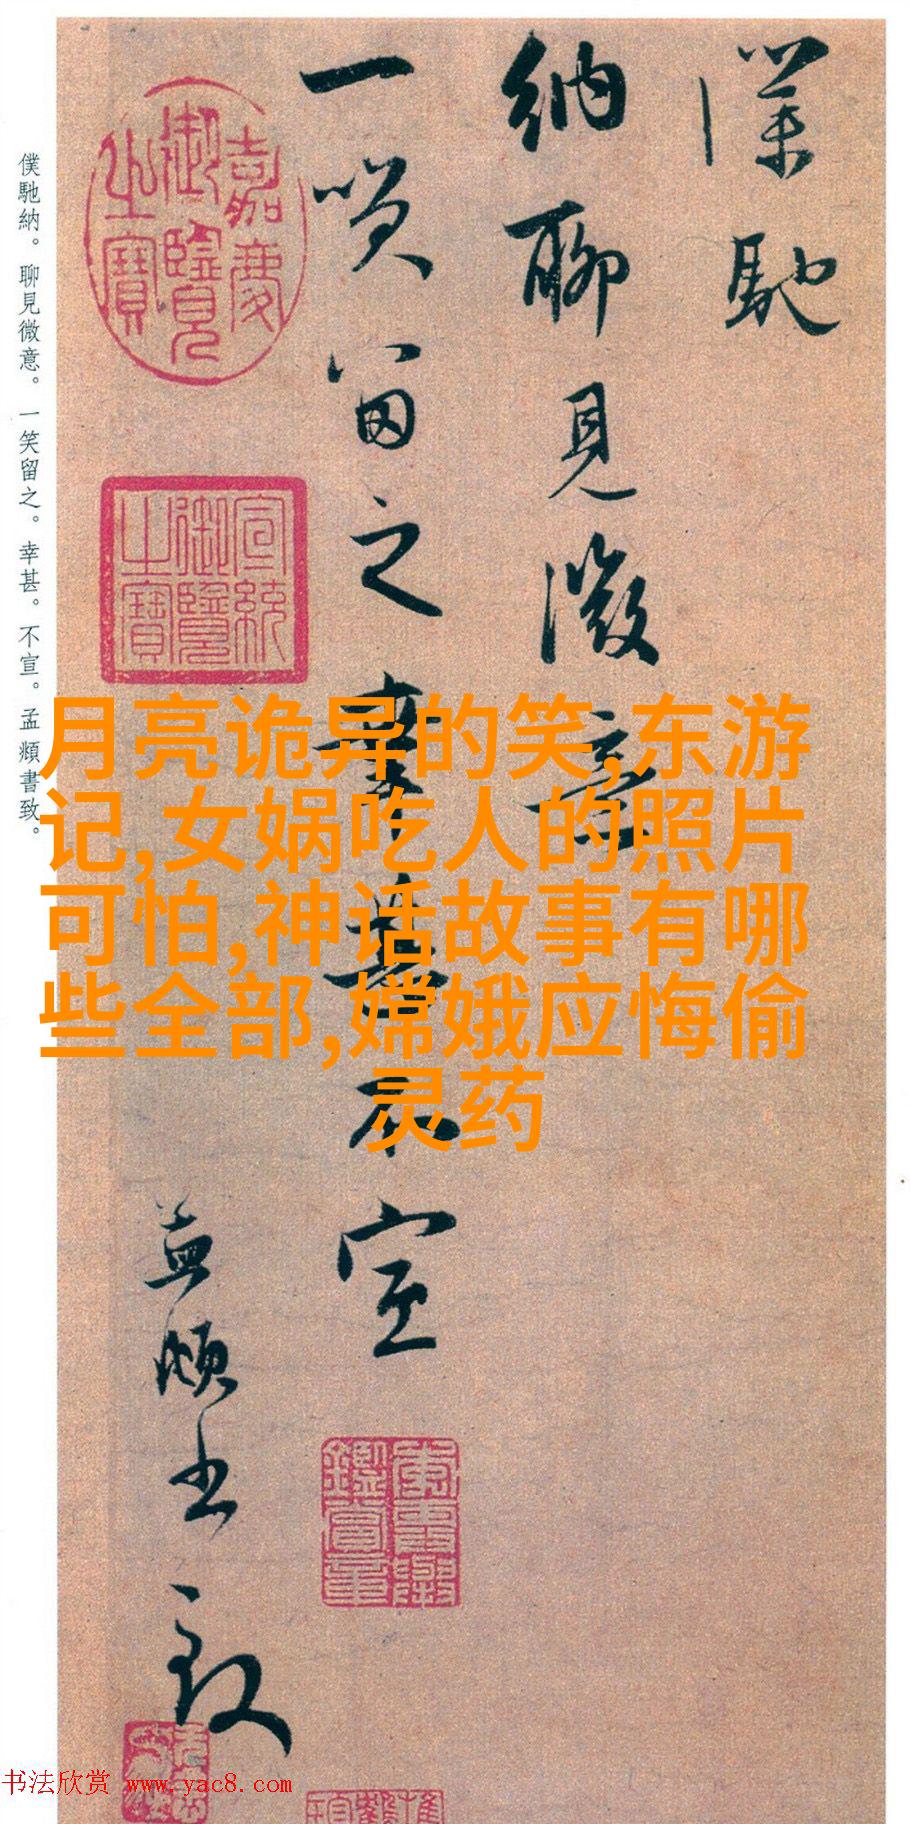 僕馳
納聊見微意
一笑留之幸甚不宣
孟頫書致
嘉慶御覽之寶
宣統御覽之寶
僕馳納。聊見微意。一笑留之。幸甚。不宣。孟頫書致。
月亮诡异的笑,东游
记,女娲吃人的照片
可怕,神话故事有哪
些全部,嫦娥应悔偷
灵药
书法欣赏 www.yac8.com